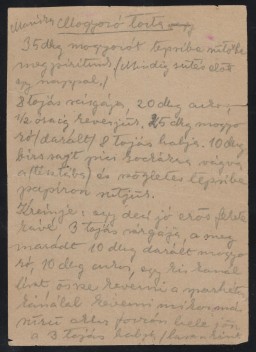 Mogyoró torta
35 dkg mogyorót tepsibe sütőbe
megpirítunk. /Mindig sütés előtt
egy nappal./
8 tojás sárgája, 20 deka cukor
1/2 óráig keverjük. 25 dkg mogyo
ró /darált/ 8 tojás habja. 10 dkg
birssajt pici kockákra vágva
és négyletes tepsibe
papíron sütjük.
Krémje: egy deci jó erős fekete
kávé. 3 tojás sárgája, a meg
maradt 10 dkg darált mogyo
ró, 10 dkg cukor, egy kis kanál
liszt össze keverni
kanállal keverni
mikor forrón bele jön
a 3 tojás habja